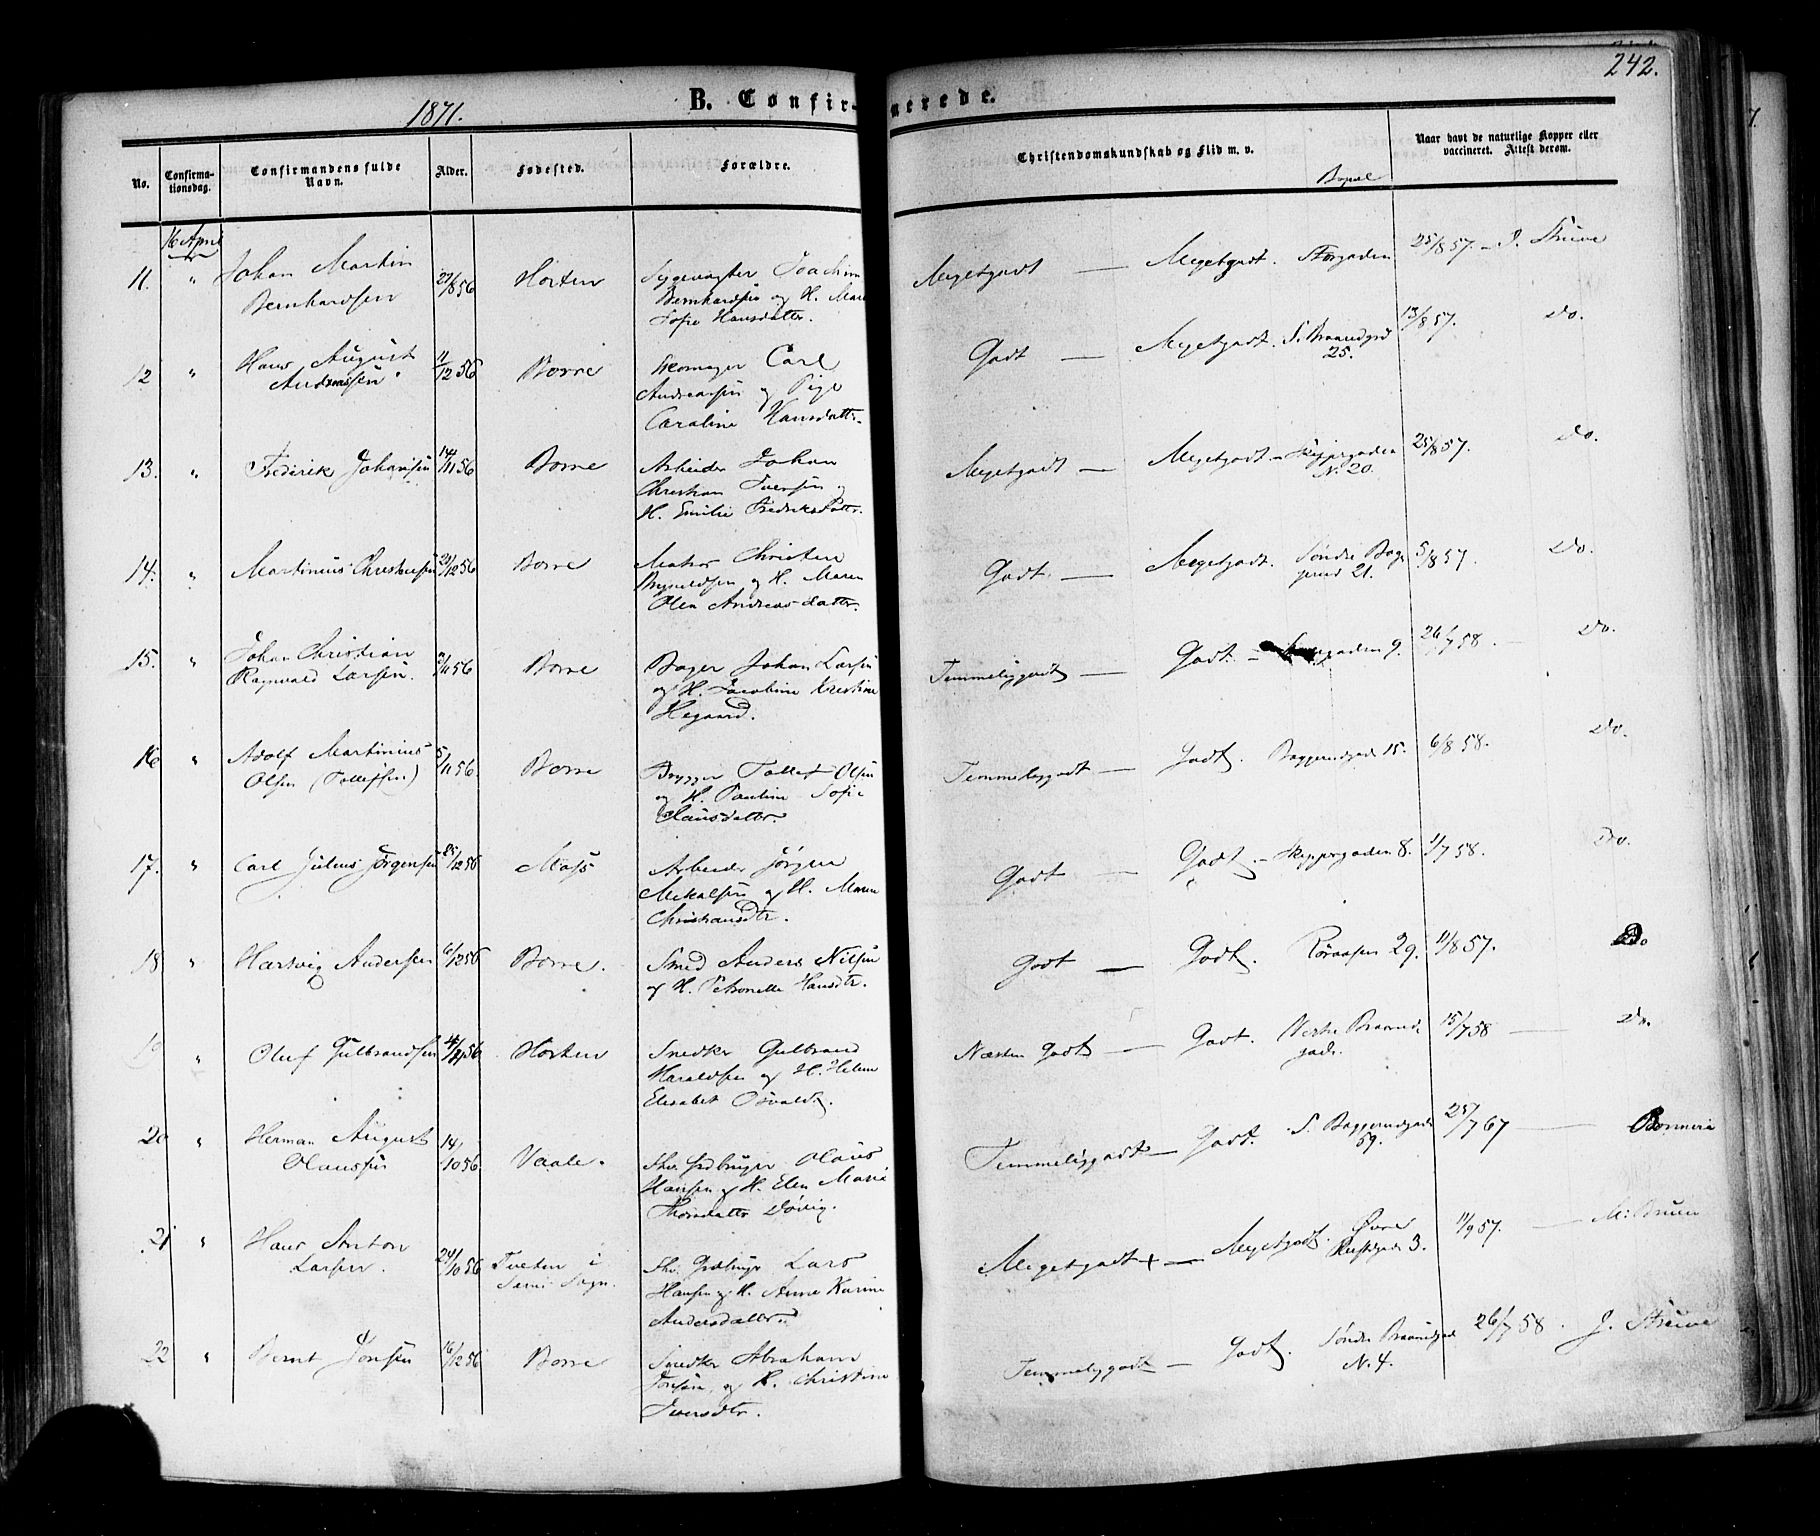 242.
1871.
B. Confirmerede.
No.
Confirma-
tionsdag.
Confirmandens fulde
Navn.
Alder.
Fødested.
Forældre.
Christendomskundskab og Flid m. v.
Bopæl
Naar havt de naturlige Kopper eller
vaccineret. Attest derom.
16 April
11. " Johan Martin
Bernhardsen
27/8 56
Horten
Sygevogter Joachim
Bernhardsen og H. Maren
Sofie Hansdatter.
Megetgodt — Megetgodt. Storgaden 25/8 57. - J. Struve
12 " Hans August
Andreassen
11/12 56
Borre
Skomager Carl
Andreassen og Pige
Caroline Hansdatter
Godt — Megetgodt S. Braaredgd
25.
13/8 57. Do.
13. " Frederik Johansen
14/11 56
Borre
Arbeider Johan
Christian Iversen og
H. Emilie Fredriksdatter.
Megetgodt — Megetgodt - Skippergaden
N. 20.
25/8 57. Do.
14. " Martinius Christensen
/12 56
Borre
Matros Christen
Brynildsen og H. Maren
Olea Andreasdatter.
Godt — Megetgodt. Søndre Bag-
gerud 21.
5/8 57. Do.
15. " Johan Christian
Ragnvald Larsen.
/11 56
Borre
Bager Johan Larsen
og H. Jacobine Kristine
Hegaard.
Temmeliggodt — Godt. - gaden 9. 26/7 58. - Do.
16 " Adolf Martinius
Olsen (Tollefsen)
5/11 56.
Borre
Brygger Tollef Olsen
og H. Pauline Sofie
Hansdatter.
Temmeliggodt — Godt. Baggerudgade 15. 6/8 58. Do.
17. " Carl Julius Jørgensen
25/12 56
Moss
Arbeider Jørgen
Mikalsen og H. Maren
Christiansdtr.
Godt — Godt. - Skippergaden 8. 1/7 58. Do.
18 " Hartvig Andersen
6/12 56
Borre.
Smed Anders Nilsen
og H. Petronelle Hansdtr.
Godt — Godt. Røraasen 29. 11/8 57. Do
19 " Oluf Gulbrandsen
56
Horten
Snedker Gulbrand
Haraldsen og H. Helene
Elisabet Osvald
Næsten Godt — Godt. Vestre Braarud-
gade.
15/7 58 — Do.
20 " Herman August
Olaussen
14/10 56
Vaale.
Olaus
Hansen og H. Elen Marie
Thorsdatter
Temmeliggodt — Godt. S. Baggerudgade
59.
25/7 67 —
21 " Hans Anton
Larsen.
24/10 56
Tveten i
Sems Sogn.
Lars
Hansen og H. Anne Karine
Andersdatter
Megetgodt + — Megetgodt. Øvre
3.
11/9 57. — M. Bruun
22 " Bernt Jonsen
16/12 56
Borre
Snedker Abraham
Jonsen og H. Christine
Iversdtr.
Temmeliggodt — Godt. Søndre Braarudgade
N. 4.
26/7 58. — J. Struve